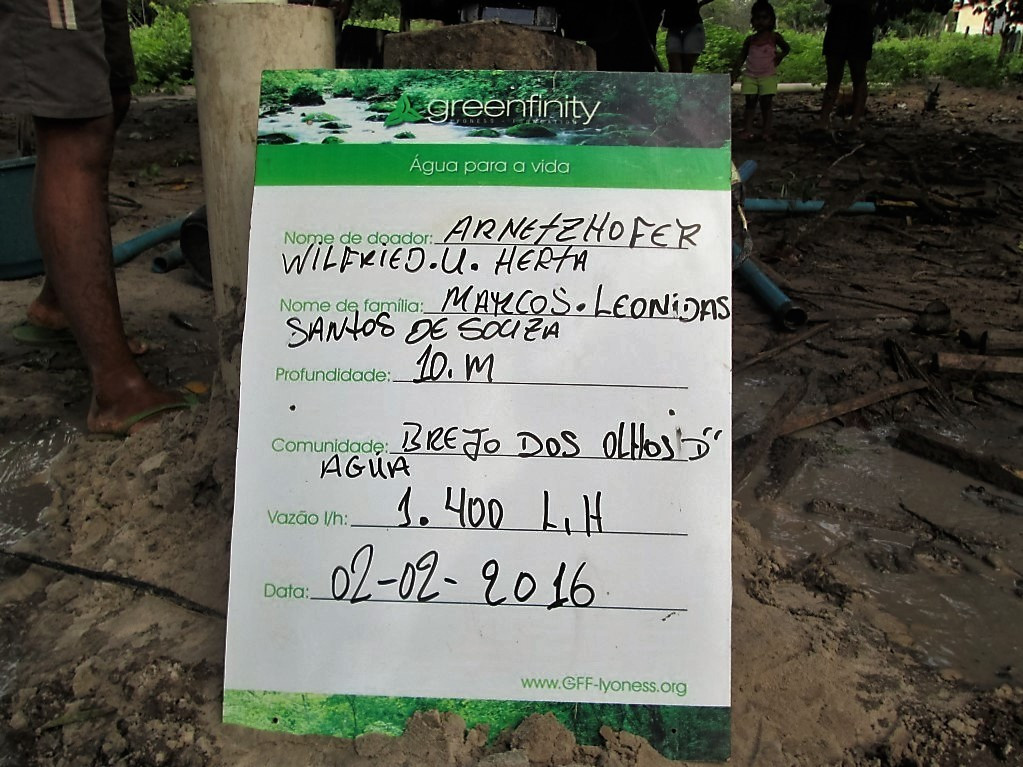 greenfinity
LYONESS · FOUNDATION
Água para a vida
Nome de doador: ARNETZHOFER
WILFRIED.U. HERTA
Nome de família: MARCOS.LEONIDAS
SANTOS DE SOUZA
Profundidade: 10.M
Comunidade: BREJO DOS OLHOS D"
AGUA
Vazão l/h: 1.400 L,H
Data: 02-02-2016
www.GFF-lyoness.org